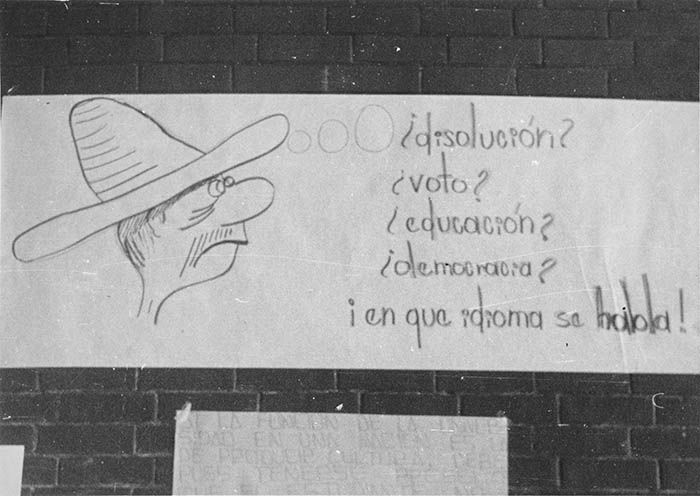 ¿disolución?
¿voto?
¿educación?
¿democracia?
¡en que idioma se habla!
DE LA FUNCION DE LA UNIVER
SIDAD EN UNA NACION ES LA
DE PRODUCIR CULTURA, PERO